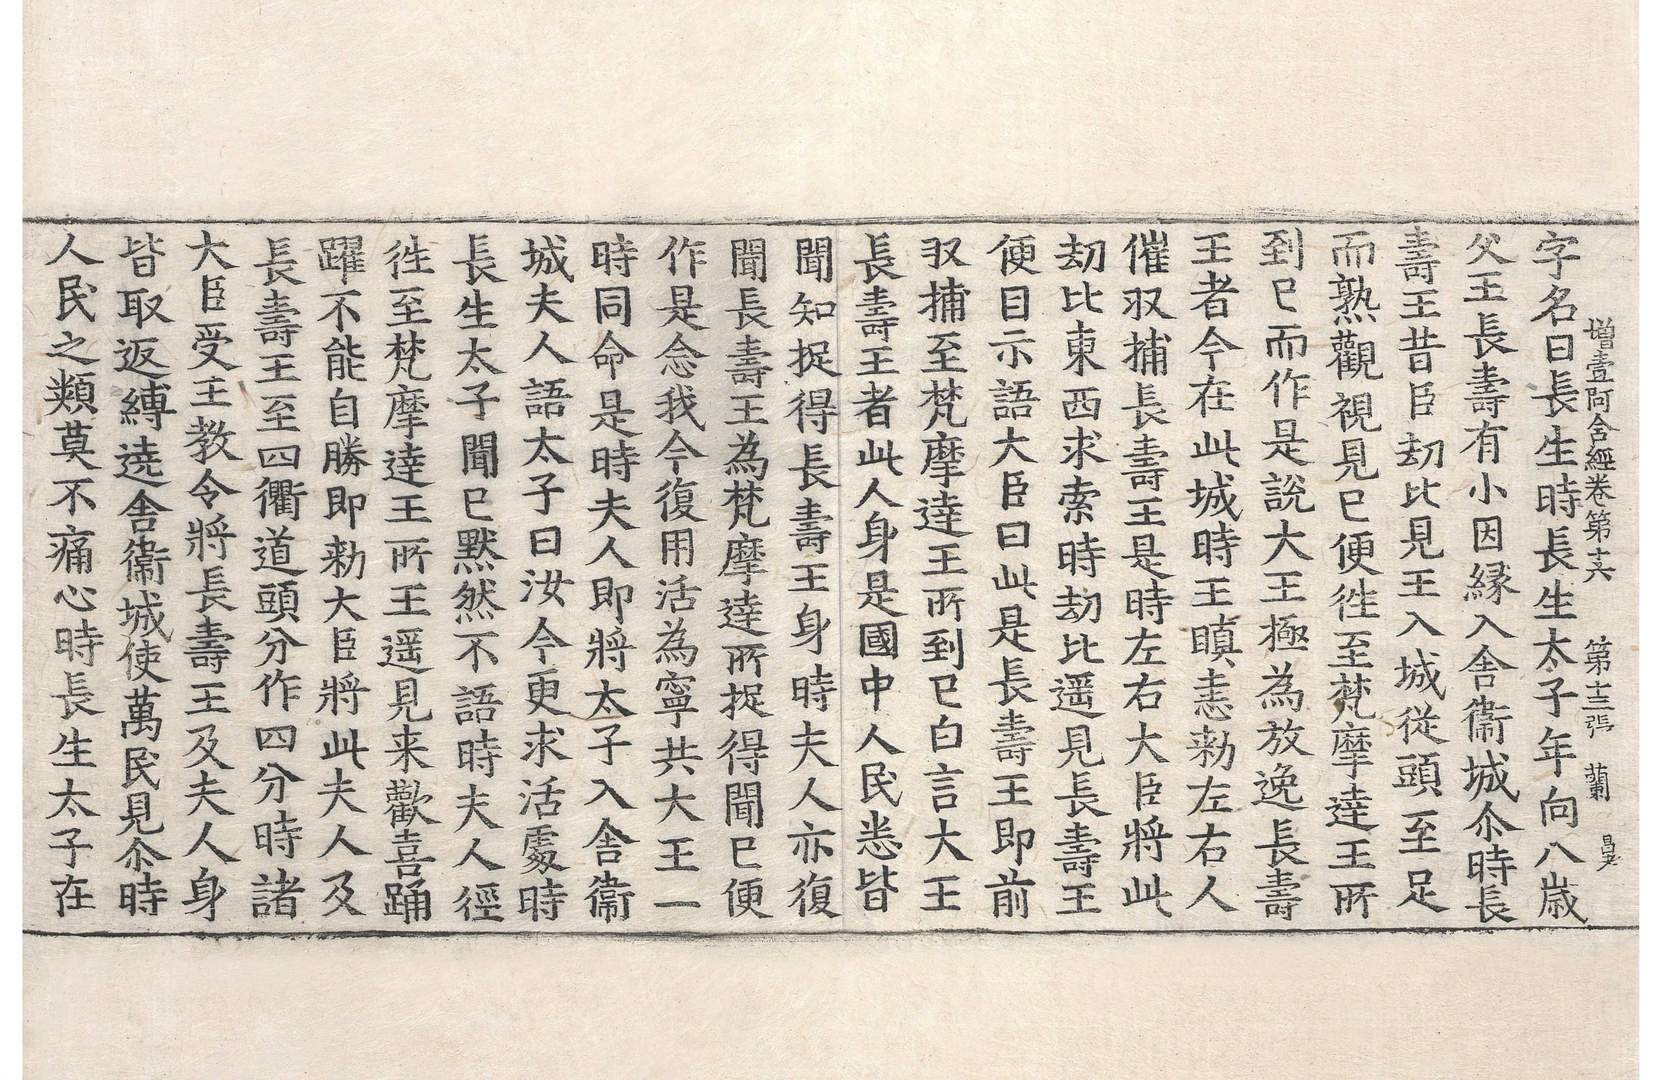 增壹阿含經卷第十六 第十三張 蘭
字名曰長生時長生太子年向八歲
父王長壽有小因緣入舍衞城尒時長
壽王昔臣劫比見王入城從頭至足
而熟觀視見已便徃至梵摩達王所
到已而作是說大王極為放逸長壽
王者今在此城時王瞋恚勑左右人
催収捕長壽王是時左右大臣將此
劫比東西求索時劫比遥見長壽王
便目示語大臣曰此是長壽王即前
収捕至梵摩達王所到已白言大王
長壽王者此人身是國中人民悉皆
聞知捉得長壽王身時夫人亦復
聞長壽王為梵摩達所捉得聞已便
作是念我今復用活為寧共大王一
時同命是時夫人即將太子入舍衞
城夫人語太子曰汝今更求活處時
長生太子聞已默然不語時夫人徑
徃至梵摩達王所王遥見来歡喜踊
躍不能自勝即勑大臣將此夫人及
長壽王至四衢道頭分作四分時諸
大臣受王教令將長壽王及夫人身
皆取返縛遶舍衞城使萬民見尒時
人民之類莫不痛心時長生太子在